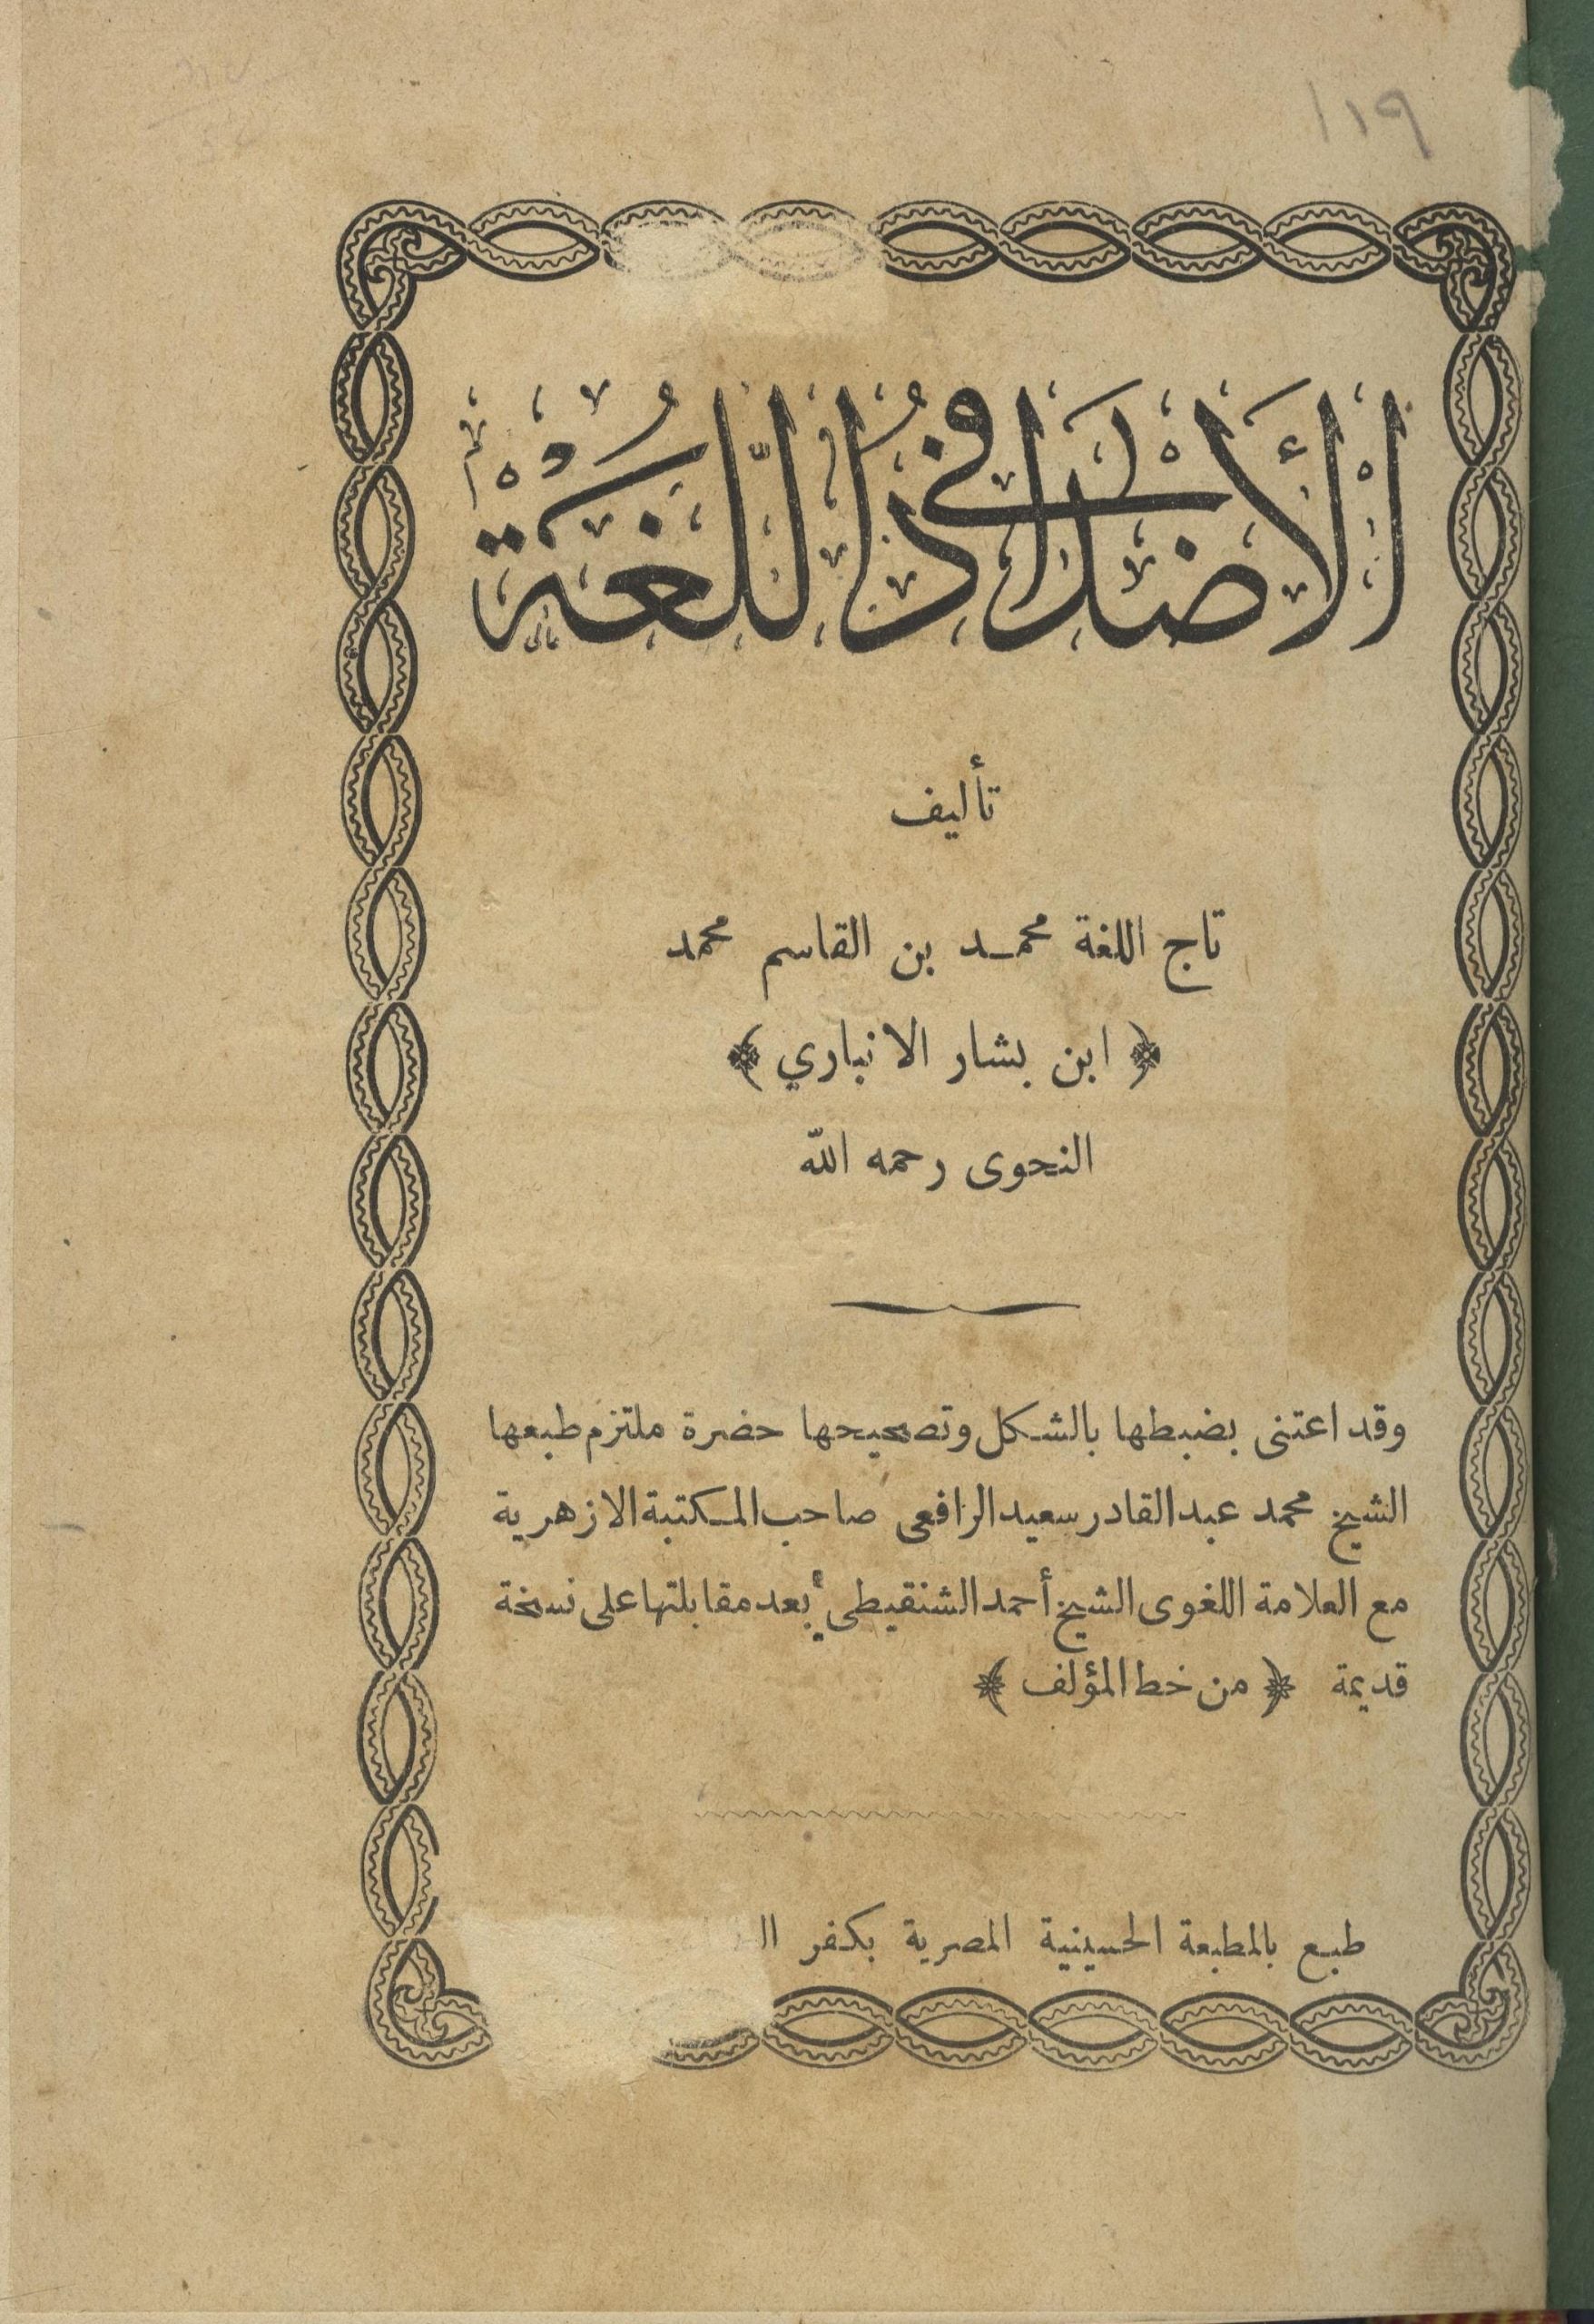 ١١٩
الأضداد في اللغة
تأليف
تاج اللغة محمد بن القاسم محمد
﴿ ابن بشار الانباري ﴾
النحوى رحمه الله
وقد اعتنى بضبطها بالشكل وتصحيحها حضرة ملتزم طبعها
الشيخ محمد عبد القادر سعيد الرافعى صاحب المكتبة الازهرية
مع العلامة اللغوى الشيخ أحمد الشنقيطى بعد مقابلتها على نسخة
قديمة ﴿ من خط المؤلف ﴾
طبع بالمطبعة الحسينية المصرية بكفر